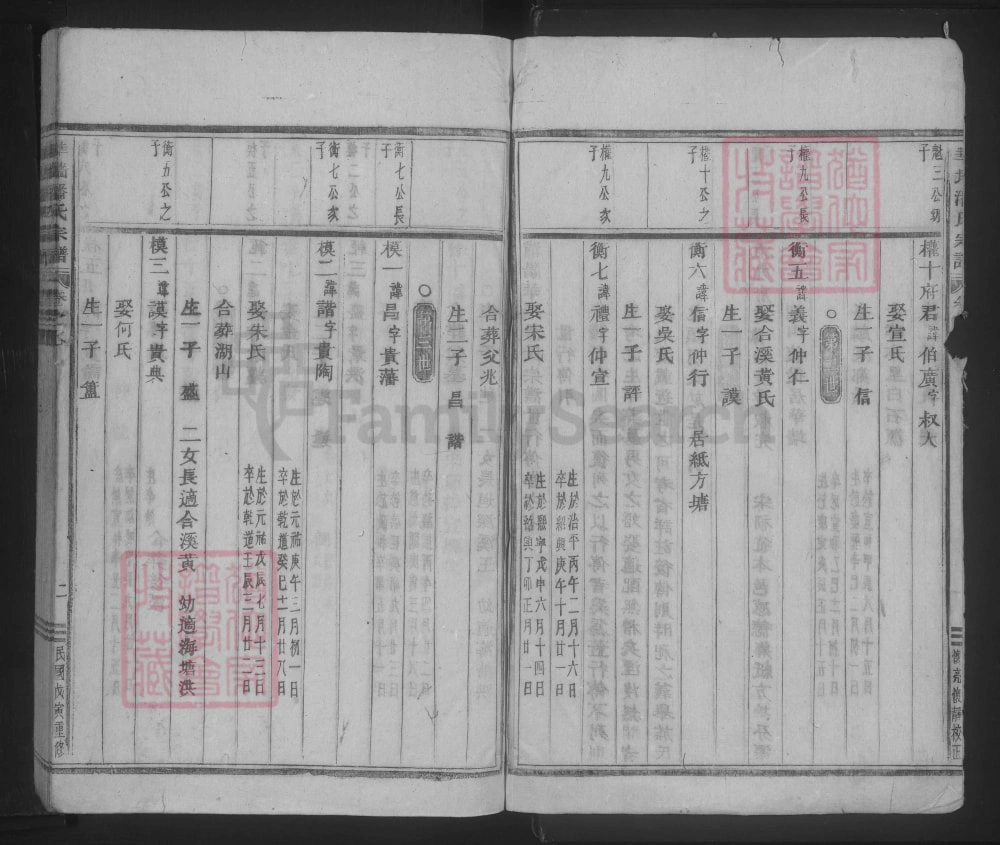 魁三公幼子
權十府君諱伯廣字叔大
娶宣氏
生一子 信
權九公長子
衡五諱義字仲仁
娶合溪黃氏
生一子 謨
權十公之子
衡六諱信字仲行 居紙方塘
娶吳氏
生一子 評
權九公次子
衡七諱禮字仲宣
生於治平丙午二月十六日
卒於紹興庚午十月廿一日
娶宋氏
生於熙寧戊申六月十四日
卒於紹興丁卯正月廿一日
合葬父兆
生二子 昌 諧
第三世
衡七公長子
模一諱昌字貴藩
衡七公次子
模二諱諧字貴陶
生於元祐庚午三月初一日
卒於乾道癸巳十一月廿八日
娶朱氏
生於元祐戊辰七月十三日
卒於乾道壬辰三月廿三日
合葬湖山
生一子 二女長適合溪黃 幼適海塘洪
衡五公之子
模三諱謨字貴典
娶何氏
生一子 盤
潘氏宗譜
二
民國戊寅重修
FamilySearch